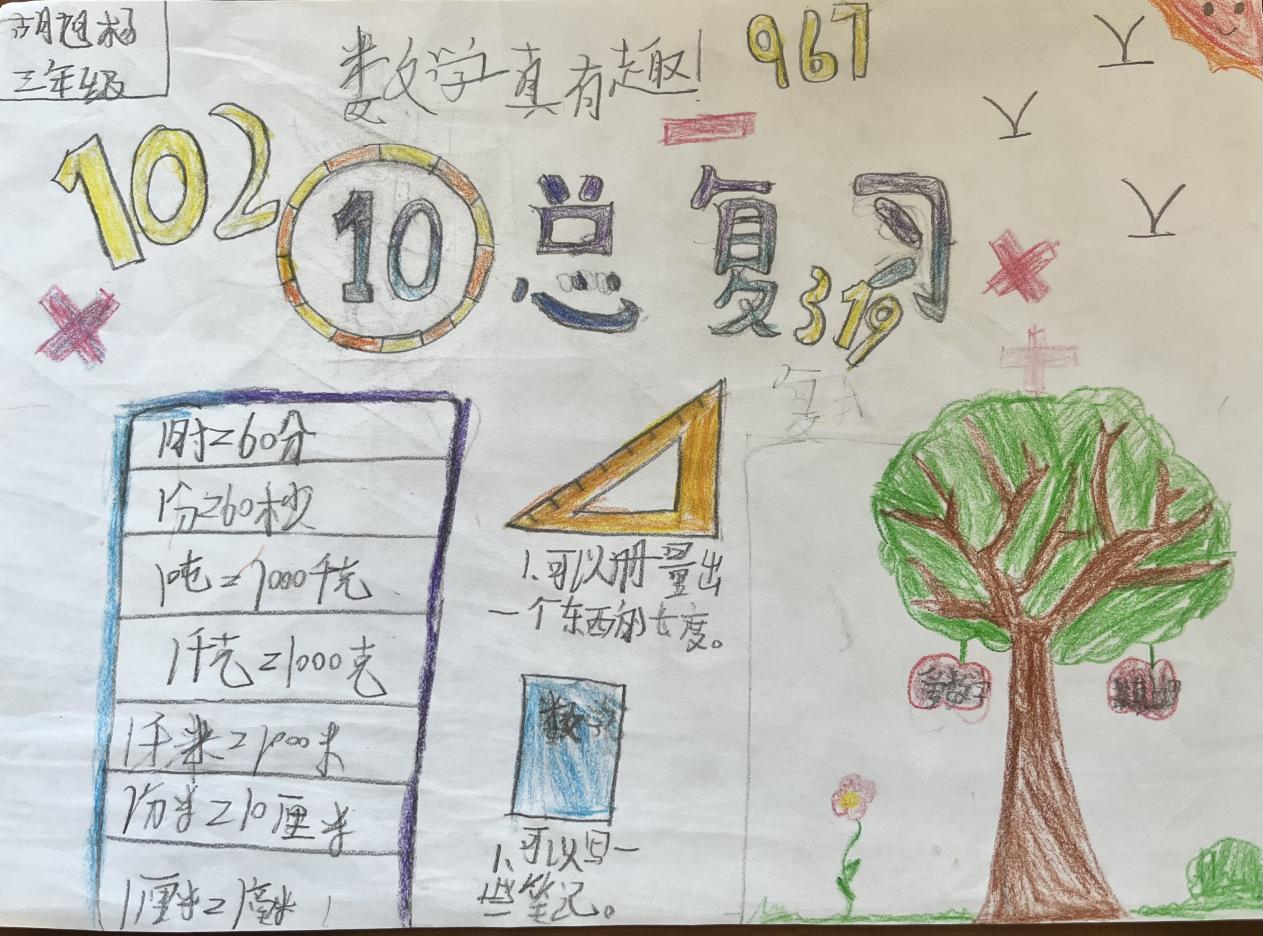 胡旭杨
三年级
数学真有趣!
967
102
10
总复习
319
1时=60分
1分=60秒
1吨=1000千克
1千克=1000克
1千米=1000米
1分米=10厘米
1厘米=1毫米
1、可以用量出
一个东西的长度。
数学
1、可以写一
些笔记。
复习